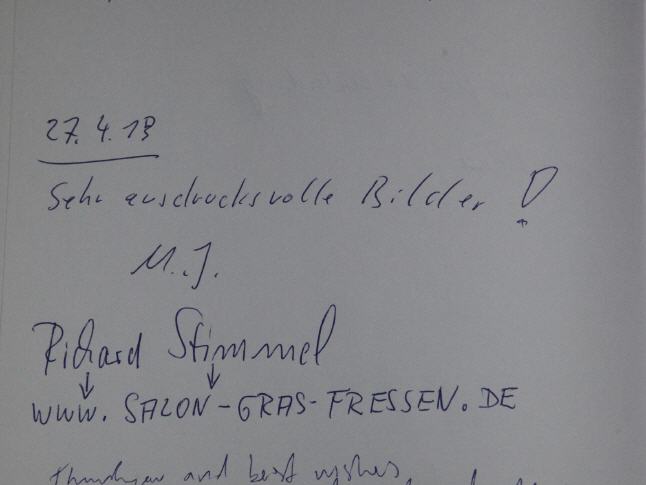 27.4.13
Sehr ausdrucksvolle Bilder!
M.J.
Richard Stimmel
WWW.SALON-GRAS-FRESSEN.DE
and best wishes,